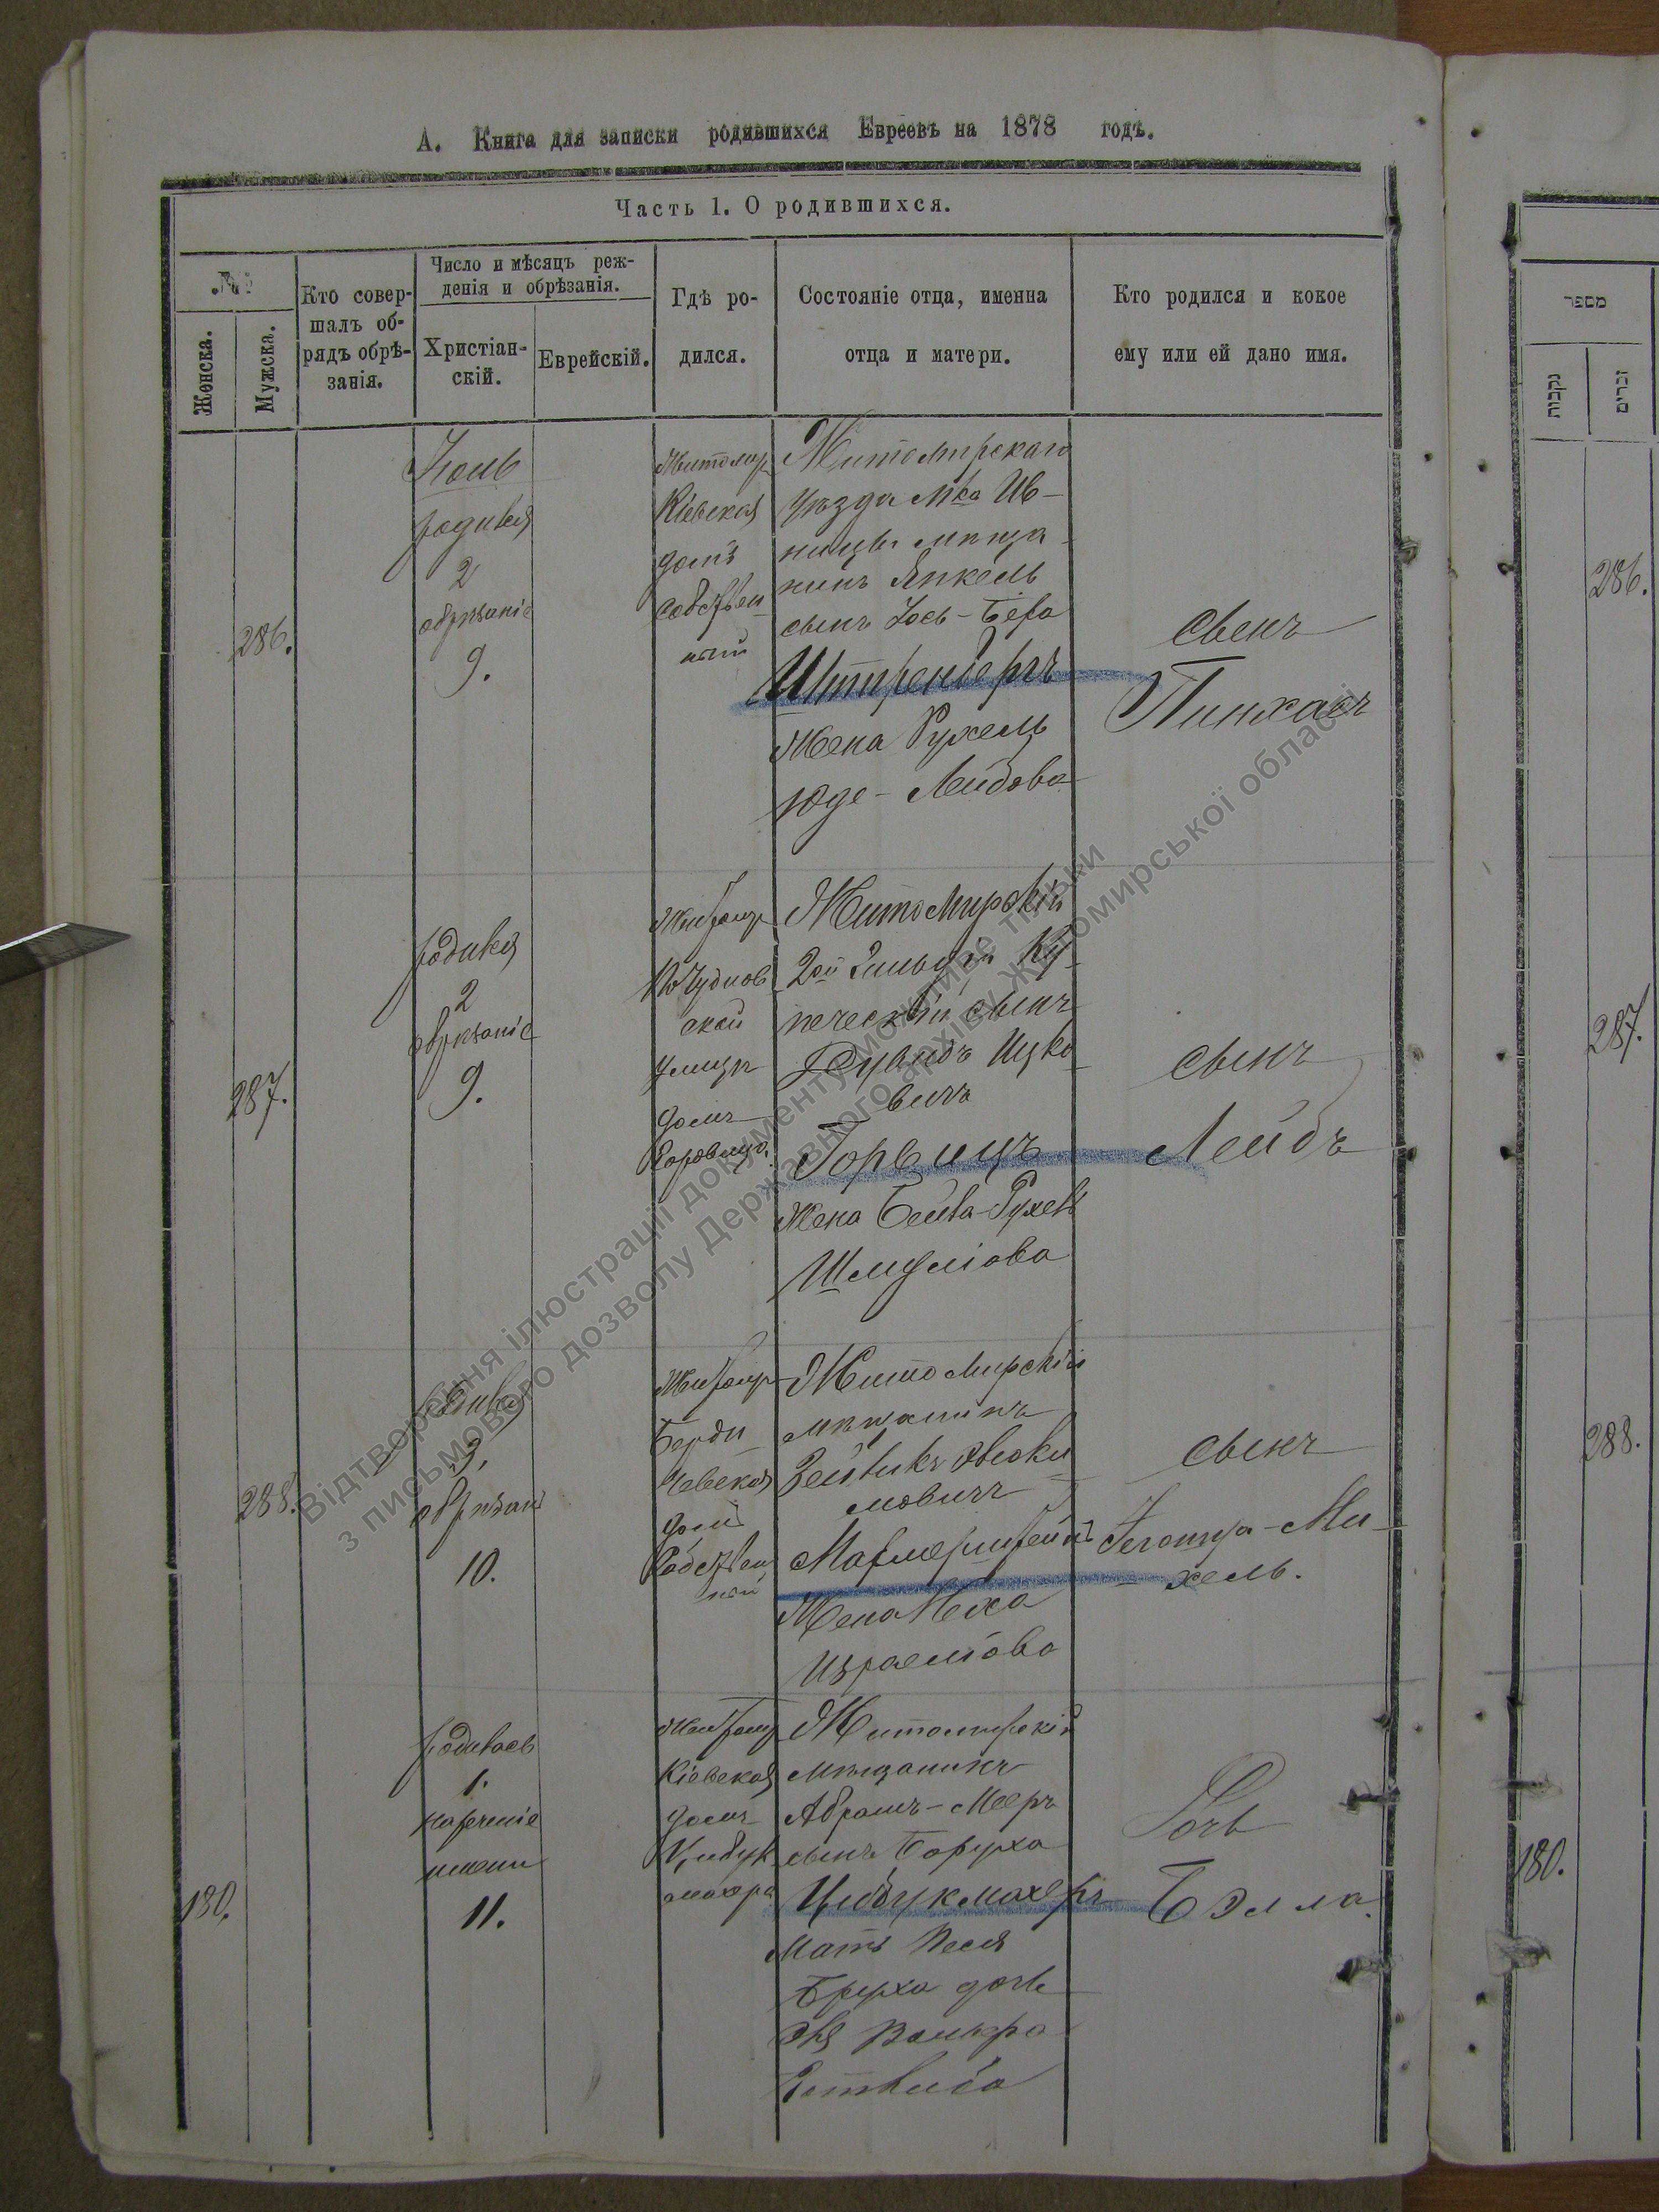 А. Книга для записки родившихся Евреевъ на 1878 годъ.
Часть 1. О родившихся.
№
Женска.
Мужска.
Кто совер-
шалъ об-
рядъ обрѣ-
занія.
Число и мѣсяцъ реж-
денія и обрѣзанія.
Христіан-
скій.
Еврейскій.
Гдѣ ро-
дился.
Состояніе отца, именна
отца и матери.
Кто родился и кокое
ему или ей дано имя.
286.
родился
2
обрѣзаніе
9.
Житомир
Кіевская
домъ
собствен
ный
Житомирскаго
уѣзда мка Ив-
ницы мѣща
нинъ Янкель
сынъ Іось-Бера
Штренберъ
жена Рухель
Юде-Лейбова
сынъ
Пинхасъ
287.
родился
2
обрѣзаніе
9.
Житомир
Чуднов
ской
улицѣ
домъ
Житомирскій
2ой гильдіи Ку
печескій сынъ
Ицко
вичъ
Горвицъ
жена Бейла-Рухель
Шмулiова
сынъ
Лейбъ
288.
3.
10.
Житомир
Берди
чевская
домъ
собствен
ный
Житомирскій
мѣщанинъ
мовичъ
жена
Израеліова
сынъ
Ми
хель.
180.
родилась
1.
нареченіе
имени
11.
Житомир
Кіевская
домъ
Цибук
махера
Житомирскій
мѣщанинъ
Абрамъ-Мееръ
сынъ Боруха
Цибукмахеръ
Мать Песя
Бруха дочь
Дочь
Бэлла.
מספר
נקבות
זכרים
286.
287.
288.
180.
Відтворення ілюстрації документу можливе тільки
з письмового дозволу Державного архіву Житомирської області